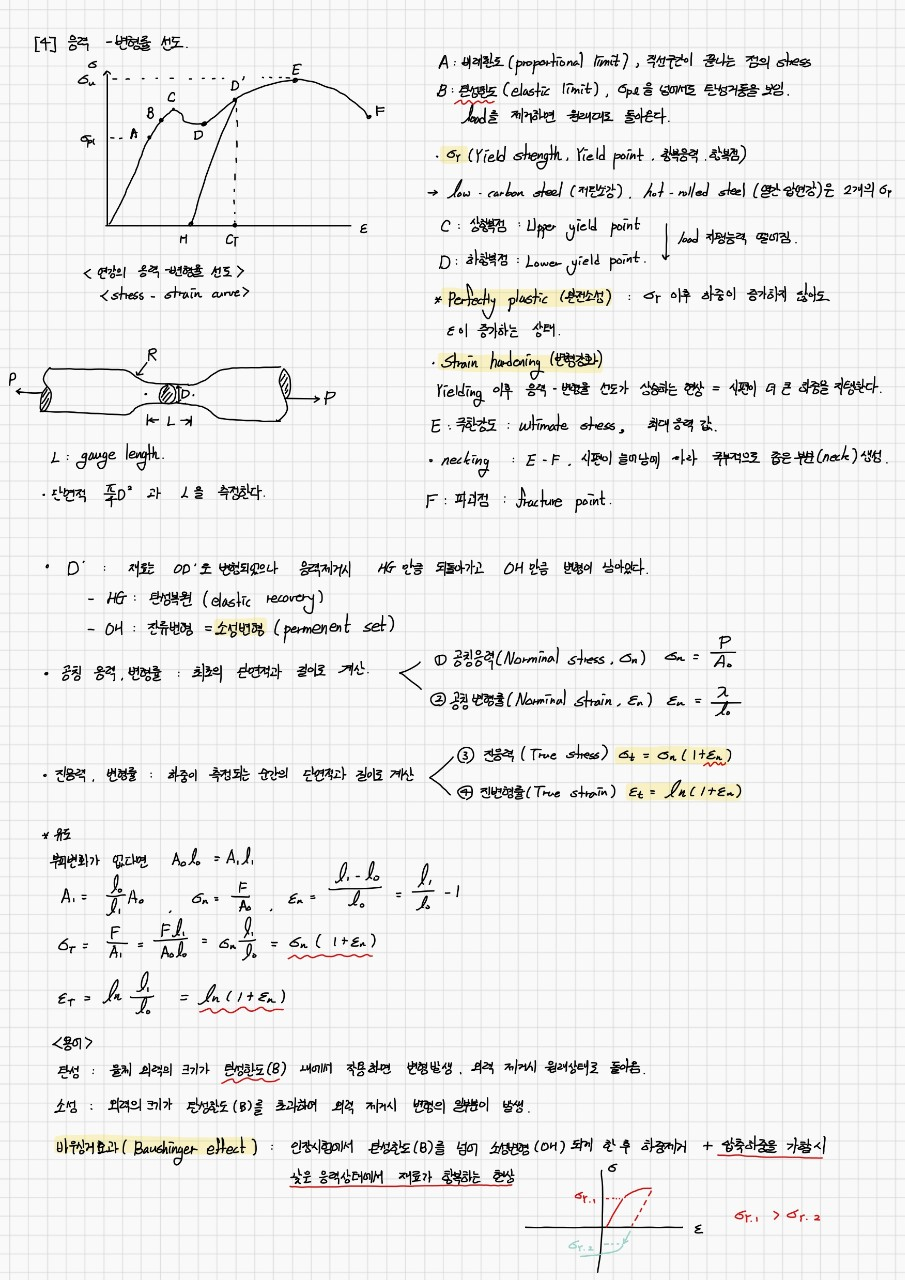 [4] 응력 -변형률 선도.
σ
σu
E
C
D'
B
F
σpl
A
D
H
G
ε
<연강의 응력-변형률 선도>
<stress - strain curve>
R
P
D
P
L
L : gauge length.
· 단면적 π/4 D² 과 L을 측정한다.
A : 비례한도 (proportional limit), 직선구간이 끝나는 점의 stress
B : 탄성한도 (elastic limit), σpl을 넘어서도 탄성거동을 보임.
load를 제거하면 원래대로 돌아온다.
· σY (Yield strength, Yield point, 항복응력, 항복점)
→ low - carbon steel (저탄소강), hot-rolled steel (열간 압연강)은 2개의 σY
C : 상항복점 : Upper yield point
D : 하항복점 : Lower yield point.
load 지탱능력 떨어짐.
* Perfectly plastic (완전소성) : σY 이후 하중이 증가하지 않아도
ε이 증가하는 상태.
· Strain hardening (변형강화)
Yielding 이후 응력-변형률 선도가 상승하는 현상 = 시편이 더 큰 하중을 지탱한다.
E : 극한강도 : ultimate stress, 최대 응력 값.
· necking : E - F, 시편이 늘어남에 따라 국부적으로 좁은부분(neck) 생성.
F : 파괴점 : fracture point.
· D' : 재료는 OD'로 변형되었으나 응력제거시 HG 만큼 되돌아가고 OH 만큼 변형이 남아있다.
- HG : 탄성복원 (elastic recovery)
- OH : 잔류변형 = 소성변형 (permenent set)
· 공칭 응력, 변형률 : 최초의 단면적과 길이로 계산.
① 공칭응력(Norminal stress, σn) σn = P/A₀
② 공칭변형률(Norminal strain, εn) εn = λ/l₀
· 진응력, 변형률 : 하중이 측정되는 순간의 단면적과 길이로 계산
③ 진응력 (True stress) σt = σn(1+εn)
④ 진변형률(True strain) εt = ln(1+εn)
* 유도
부피변화가 없다면 A₀l₀ = A₁l₁
A₁ = l₀/l₁ A₀ , σn = F/A₀ , εn = (l₁ - l₀)/l₀ = l₁/l₀ - 1
σT = F/A₁ = Fl₁/A₀l₀ = σn l₁/l₀ = σn ( 1+εn)
εT = ln l₁/l₀ = ln(1+εn)
<용어>
탄성 : 물체 외력의 크기가 탄성한도(B) 내에서 작용하면 변형발생, 외력 제거시 원래상태로 돌아옴.
소성 : 외력의 크기가 탄성한도(B)를 초과하여 외력 제거시 변형의 일부분이 발생.
바우싱거효과(Baushinger effect) : 인장시험에서 탄성한도(B)를 넘어 소성변형(OH) 되게 한 후 하중제거 + 압축하중을 가할시
낮은 응력상태에서 재료가 항복하는 현상
σ
σY.1
ε
σY.2
σY.1 > σY.2